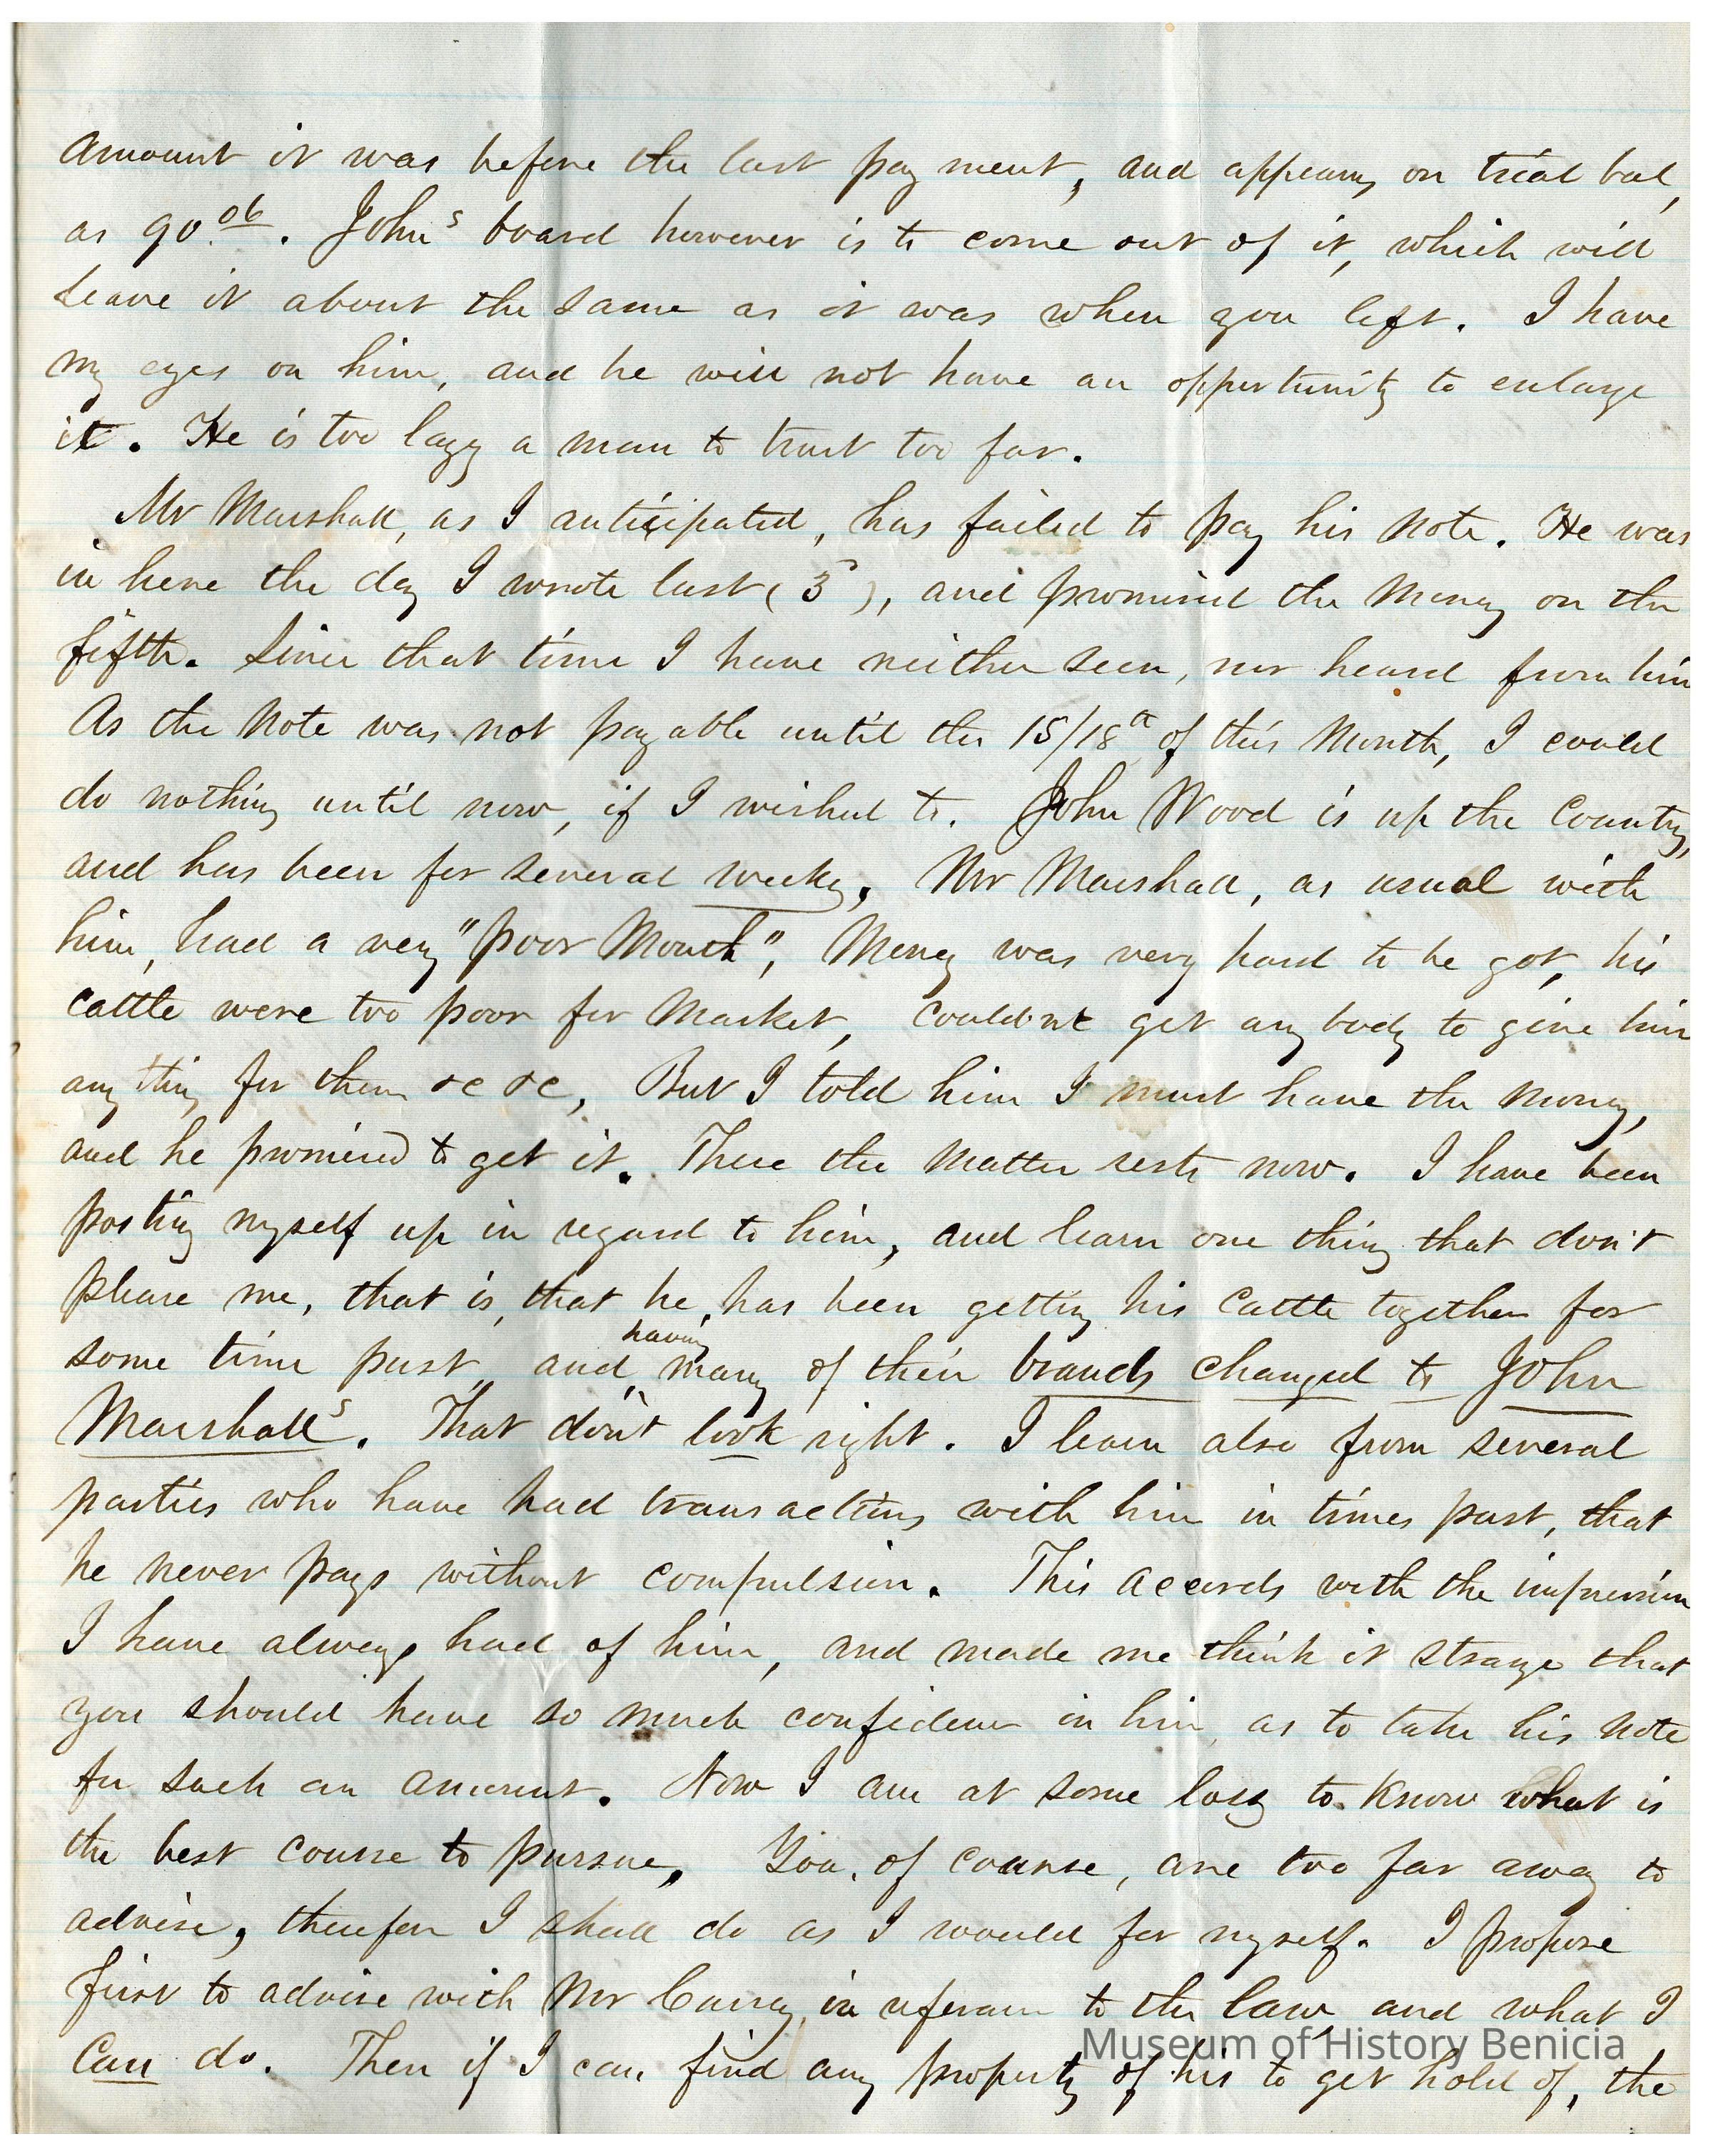 amount it was before the last payment, and appears on trial bal,
as 90.06. Johns board however is to come out of it, which will
leave it about the same as it was when you left. I have
my eyes on him, and he will not have an opportunity to enlarge
it. He is too lazy a man to trust too far.
Mr Marshall, as I anticipated, has failed to pay his note. He was
in here the day I wrote last (3d), and promised the money on the
fifth. Since that time I have neither seen, nor heard from him
As the Note was not payable until the 15/18th of this Month, I could
do nothing until now, if I wished to. John Wood is up the Country,
and has been for several weeks. Mr Marshall, as usual with
him, had a very "poor Mouth", Money was very hard to be got, his
cattle were too poor for Market, couldnt get any body to give him
any thing for them &c &c, But I told him I must have the money,
and he promised to get it. There the matter rests now. I have been
posting myself up in regard to him, and learn one thing that don't
please me, that is, that he has been getting his Cattle together for
some time past, and having many of their brands changed to John
Marshalls. That don't look right. I learn also from several
parties who have had transactions with him in times past, that
he never pays without compulsion. This accords with the impression
I have always had of him, and made me think it strange that
you should have so much confidence in him as to take his note
for such an amount. Now I am at some loss to know what is
the best course to pursue. You, of course, are too far away to
advise, therefore I shall do as I would for myself. I propose
first to advise with Mr Currey, in reference to the law, and what I
can do. Then if I can find any property of his to get hold of, the
Museum of History Benicia